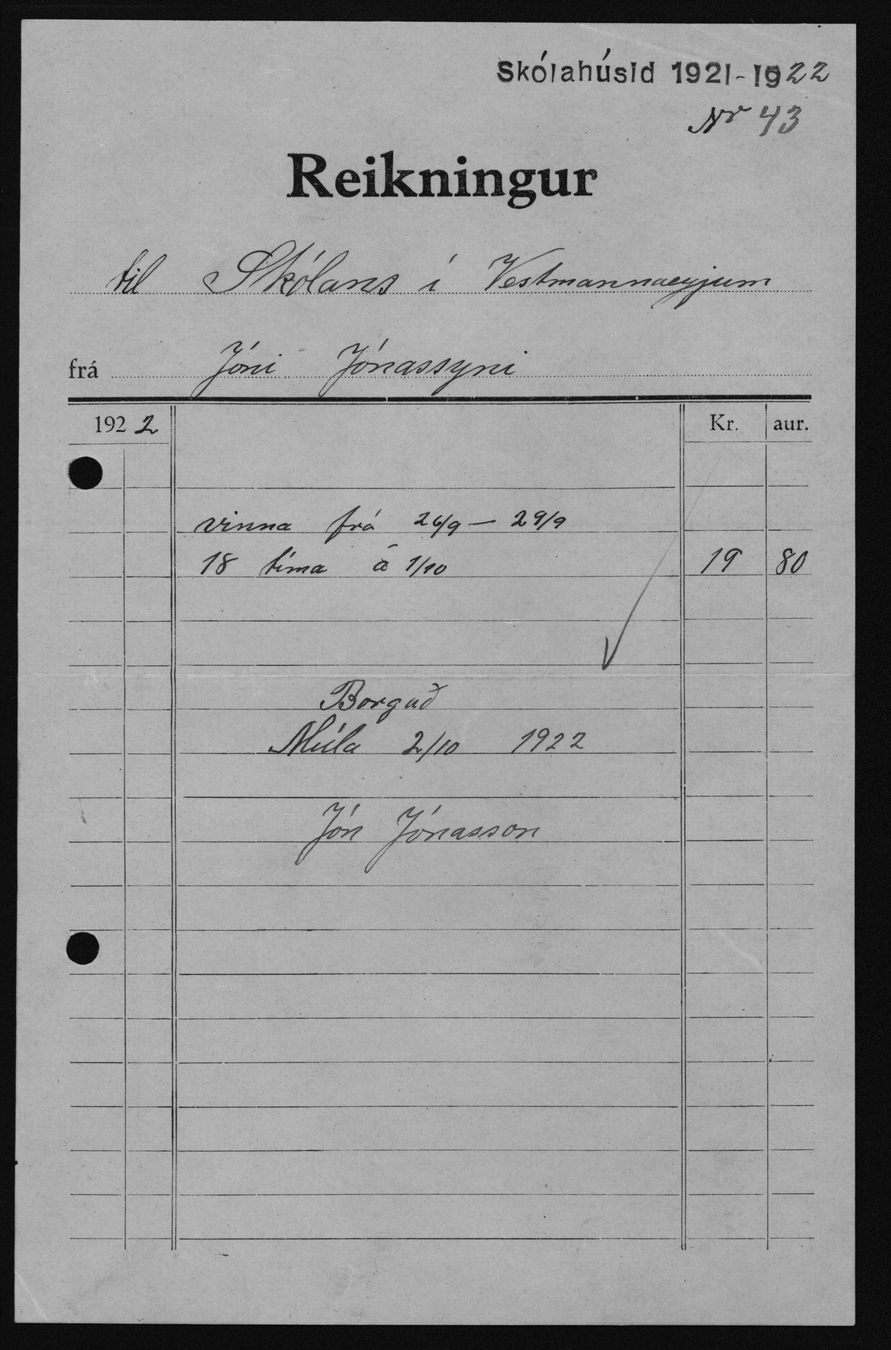 Skólahúsid 1921-1922
Nr 43
Reikningur
til Skólans í Vestmannaeyjum
frá Jóni Jónassyni
1922 Kr. aur.
vinna frá 26/9 — 29/9
18 tíma á 1/10 19 80
Borgað
Múla 2/10 1922
Jón Jónasson